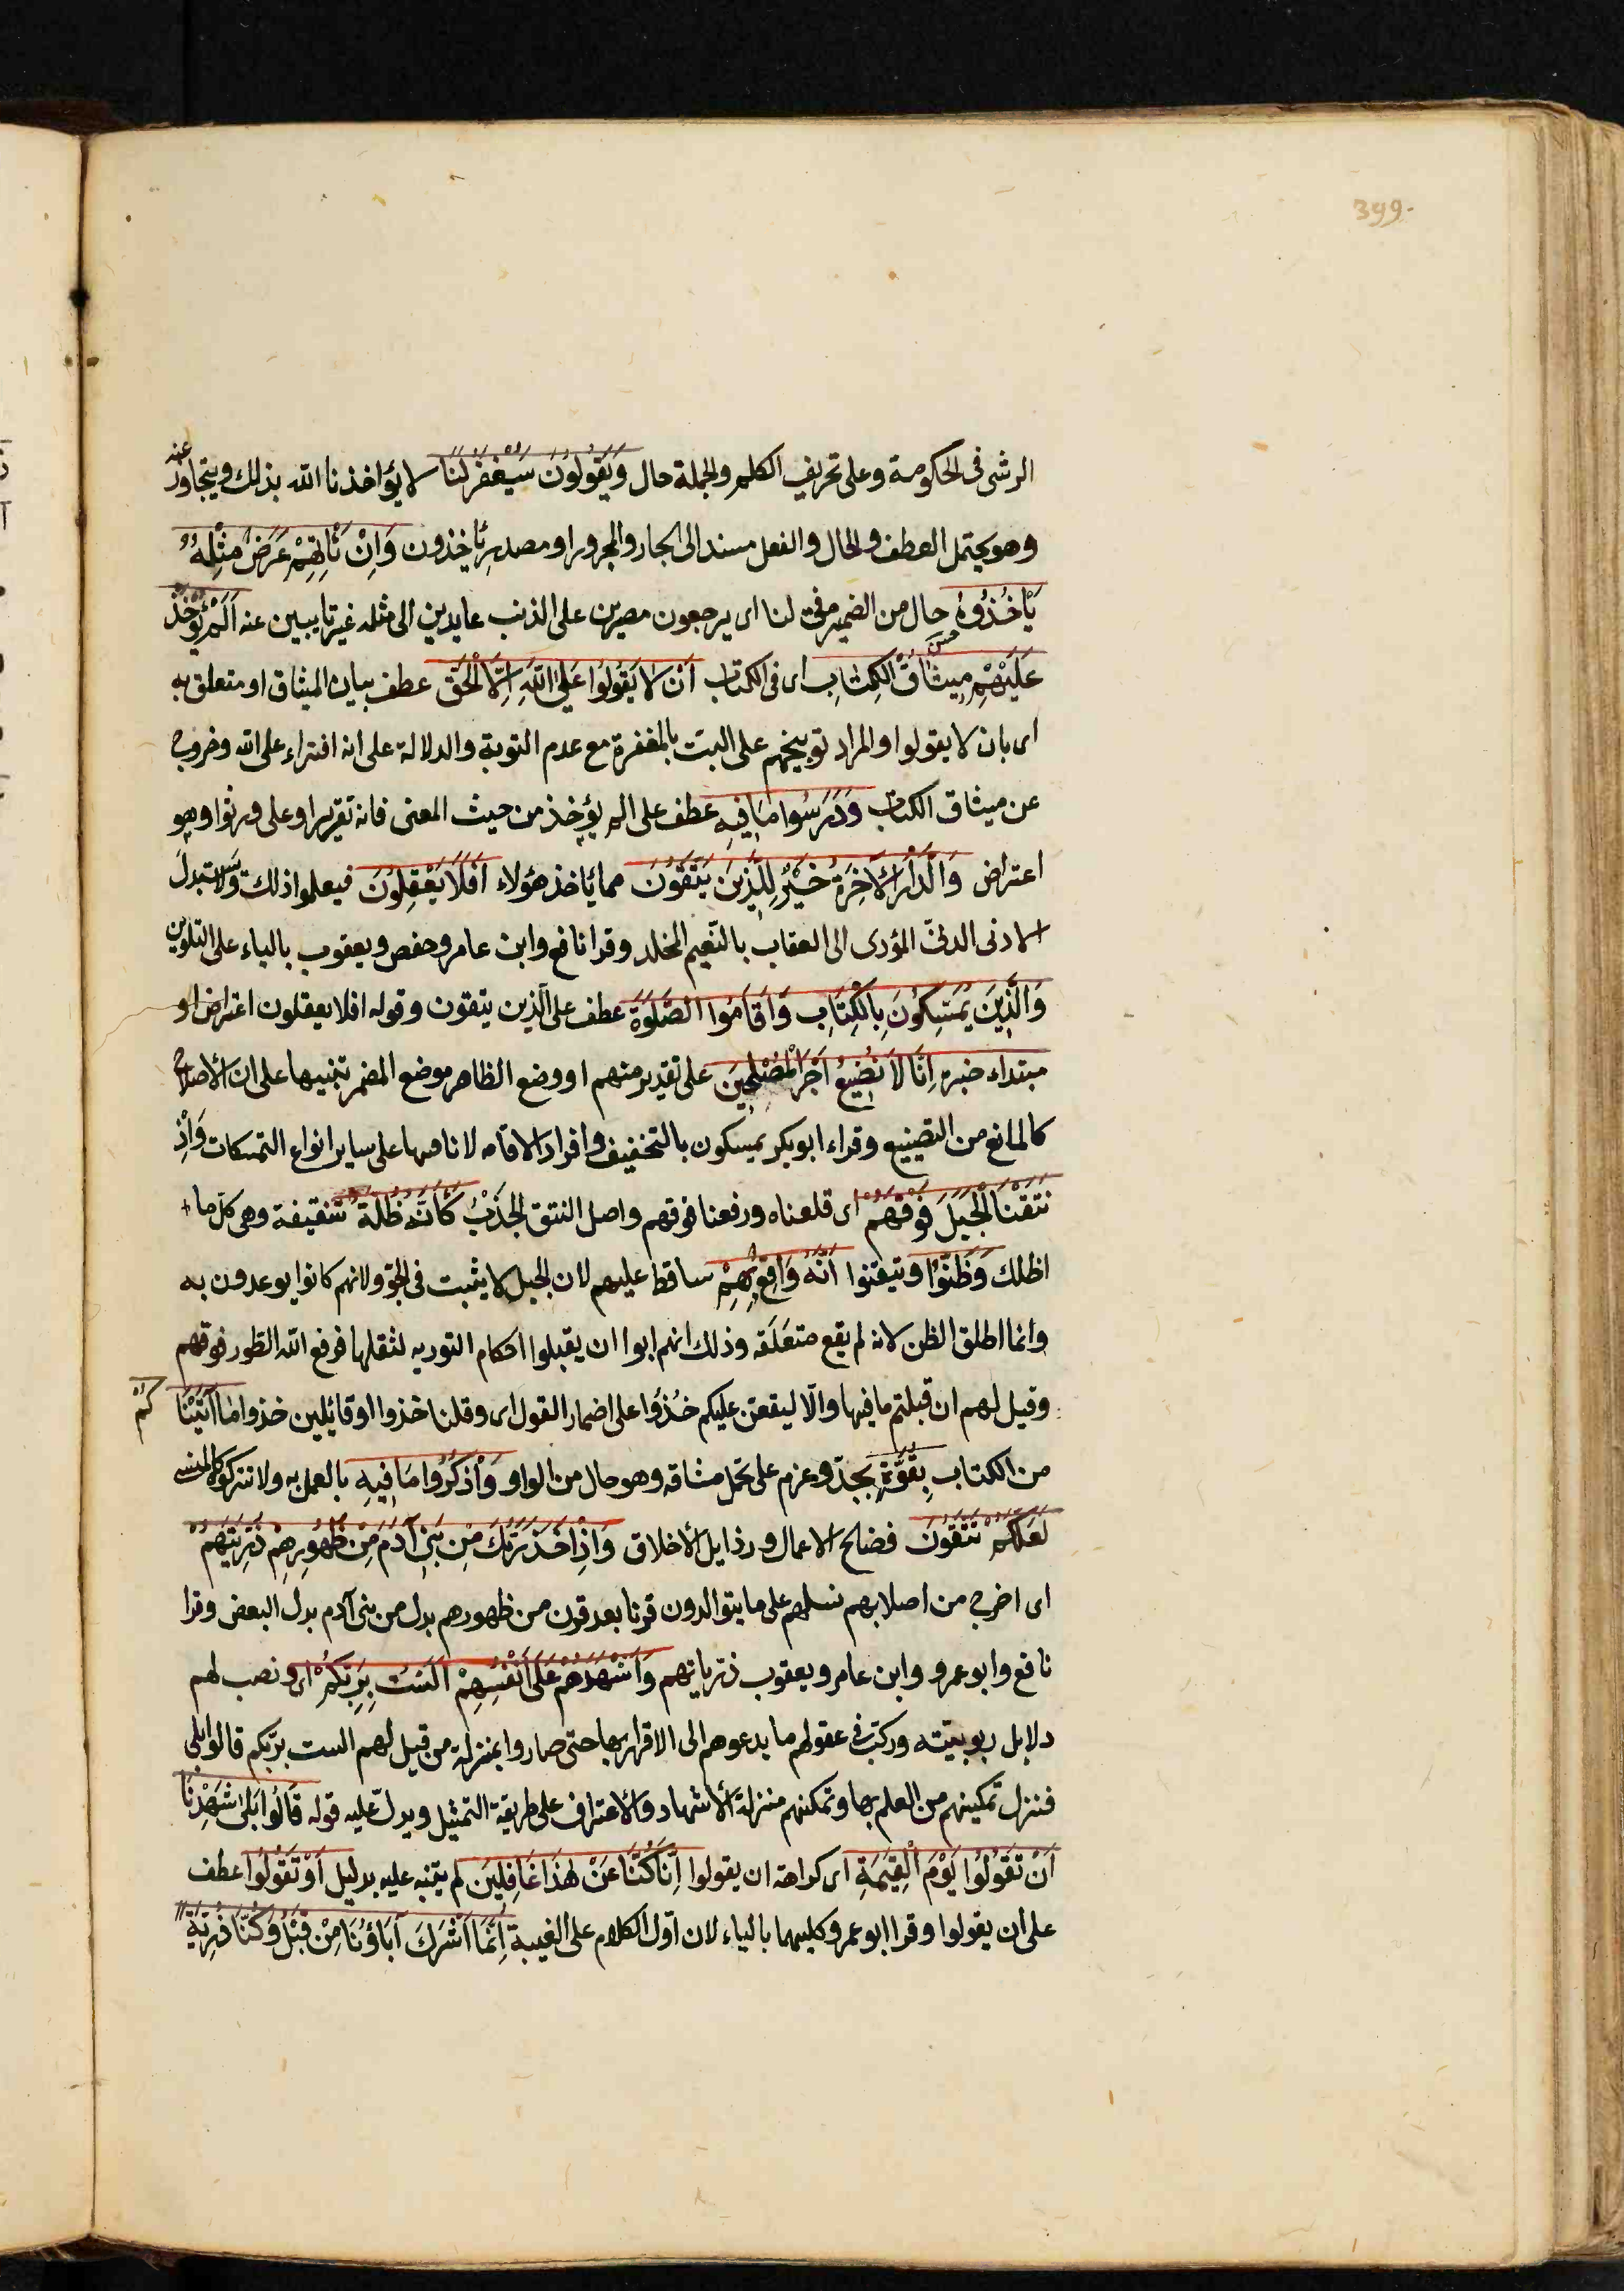 399.
الرشى فى الحكومة وعلى تحريف الكلم والجملة حال وَيَقُولُونَ سَيُغْفَرُ لَنَا لا يؤاخذنا الله بذلك ويتجاوز عنه
وهو يحتمل العطف والحال والفعل مسند الى الجار والمجرور او مصدر يأخذون وَاِنْ يَأْتِهِمْ عَرَضٌ مِثْلُهُ
يَأْخُذُوهُ حال من الضمير فى لنا اى يرجعون مصرين على الذنب عايدين الى مثله غير تايبين عنه اَلَمْ يُؤْخَذْ
عَلَيْهِمْ مِيثَاقُ الْكِتَابِ اى فى الكتاب اَنْ لَا يَقُولُوا عَلَى اللّٰهِ اِلَّا الْحَقَّ عطف بيان الميثاق او متعلق به
اى بان لا يقولوا والمراد توبيخهم على البت بالمغفرة مع عدم التوبة والدلالة على انه افتراء على الله وخروج
عن ميثاق الكتاب وَدَرَسُوا مَا فِيهِ عطف على الم يؤخذ من حيث المعنى فانه تقرير او على ورثوا وهو
اعتراض وَالدَّارُ الْآخِرَةُ خَيْرٌ لِلَّذِينَ يَتَّقُونَ مما يأخذ هؤلاء اَفَلَا يَعْقِلُونَ فيعلموا ذلك ولا يستبدل
الادنى الدنى المؤدى الى العقاب بالنعيم المخلد وقرا نافع وابن عامر وحفص ويعقوب بالياء على التلوين
وَالَّذِينَ يُمَسِّكُونَ بِالْكِتَابِ وَاَقَامُوا الصَّلٰوةَ عطف على الذين يتقون وقوله افلا يعقلون اعتراض او
مبتداء خبره اِنَّا لَا نُضِيعُ اَجْرَ الْمُصْلِحِينَ على تقدير منهم او وضع الظاهر موضع المضمر تنبيها على ان الاصلاح
كالمانع من التضييع وقراء ابو بكر يمسكون بالتخفيف وافراد الاقامه لانافتها على ساير انواع التمسكات وَاِذْ
نَتَقْنَا الْجَبَلَ فَوْقَهُمْ اى قلعناه ورفعنا فوقهم واصل النتق الجذب كَاَنَّهُ ظُلَّةٌ سقيفة وهى كل ما
اظلك وَظَنُّوا وتيقنوا اَنَّهُ وَاقِعٌ بِهِمْ ساقط عليهم لان الجبل لا يثبت فى الجو ولانهم كانوا يوعدون به
وانما اطلق الظن لانه لم يقع متعلقه وذلك انهم ابوا ان يقبلوا احكام التوريه لثقلها فرفع الله الطور فوقهم
وقيل لهم ان قبلتم ما فيها والّا ليقعن عليكم خُذُوا على اضمار القول اى وقلنا خذوا او قائلين خذوا مَا آتَيْنَاكُمْ
من الكتاب بِقُوَّةٍ بجد وعزم على تحمل مشاقه وهو حال من الواو وَاذْكُرُوا مَا فِيهِ بالعمل به ولا تتركوه كالمنسى
لَعَلَّكُمْ تَتَّقُونَ فضايح الاعمال ورذايل الاخلاق وَاِذْ اَخَذَ رَبُّكَ مِنْ بَنِى آدَمَ مِنْ ظُهُورِهِمْ ذُرِّيَّتَهُمْ
اى اخرج من اصلابهم نسلهم على ما يتوالدون قرنا بعد قرن من ظهورهم بدل من بنى آدم بدل البعض وقرا
نافع وابو عمرو وابن عامر ويعقوب ذرياتهم وَاَشْهَدَهُمْ عَلٰى اَنْفُسِهِمْ اَلَسْتُ بِرَبِّكُمْ اى ونصب لهم
دلايل ربوبيته وركب فى عقولهم ما يدعوهم الى الاقرار بها حتى صاروا بمنزلة من قيل لهم الست بربكم قالوا بلى
فنزل تمكينهم من العلم بها وتمكنهم منزلة الاشهاد والاعتراف على طريقة التمثيل ويدل عليه قوله قَالُوا بَلٰى شَهِدْنَا
اَنْ تَقُولُوا يَوْمَ الْقِيٰمَةِ اى كراهة ان يقولوا اِنَّا كُنَّا عَنْ هٰذَا غَافِلِينَ لم ينبه عليه بدليل اَوْ تَقُولُوا عطف
على ان يقولوا وقرا ابو عمرو كليهما بالياء لان اول الكلام على الغيبة اِنَّمَا اَشْرَكَ آبَاؤُنَا مِنْ قَبْلُ وَكُنَّا ذُرِّيَّةً